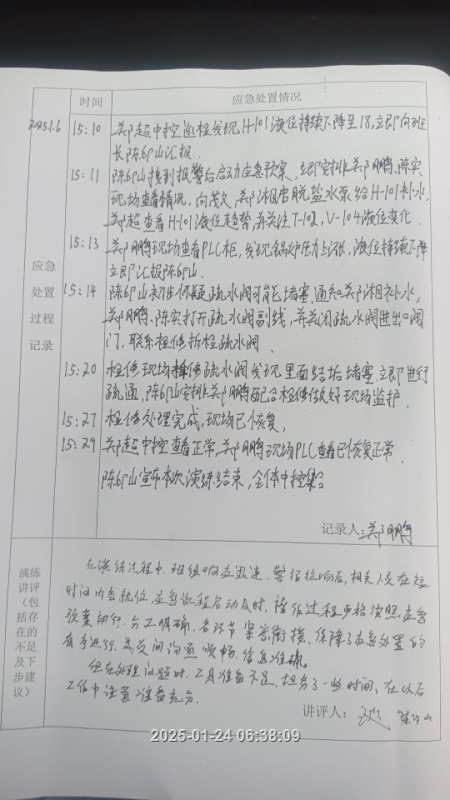 时间 应急处置情况
2025.1.6 15:10 郑超中控巡检发现H-101液位持续下降至18,立即向班
长陈邱山汇报.
15:11 陈邱山接到报警后启动应急预案,立即安排郑鹏、陈实
现场查看情况,向茂文、郑湘启脱盐水泵给H-101补水,
郑超查看H-101液位趋势,并关注T-102、V-104液位变化.
15:13 郑鹏现场查看PLC柜,发现锅炉压力上涨,液位持续下降
立即汇报陈邱山.
15:14 陈邱山初步怀疑疏水阀可能堵塞,通知郑湘补水,
郑鹏、陈实打开疏水阀副线,并关闭疏水阀进出口阀
门,联系检修拆检疏水阀.
15:20 检修现场拆修疏水阀发现里面结垢堵塞,立即进行
疏通,陈邱山安排郑鹏配合检修做好现场监护.
15:27 检修处理完成,现场已恢复,
15:29 郑超中控查看正常,郑鹏现场PLC查看已恢复正常.
陈邱山宣布本次演练结束,全体中控集合
应急
处置
过程
记录
记录人:郑鹏
演练
讲评
(包
括存
在的
不足
及下
步建
议)
在演练过程中,班组响应迅速,警报拉响后,相关人员在短
时间内各就位,应急流程启动及时,操作过程严格按照应急
预案执行,分工明确,各环节紧密衔接,保障了应急处置的
有序进行,员交间沟通顺畅,信息准确.
但在处理问题时,工具准备不足,担务了一些时间,在以后
工作中注意准备充分.
讲评人: 陈邱山
2025-01-24 06:38:09